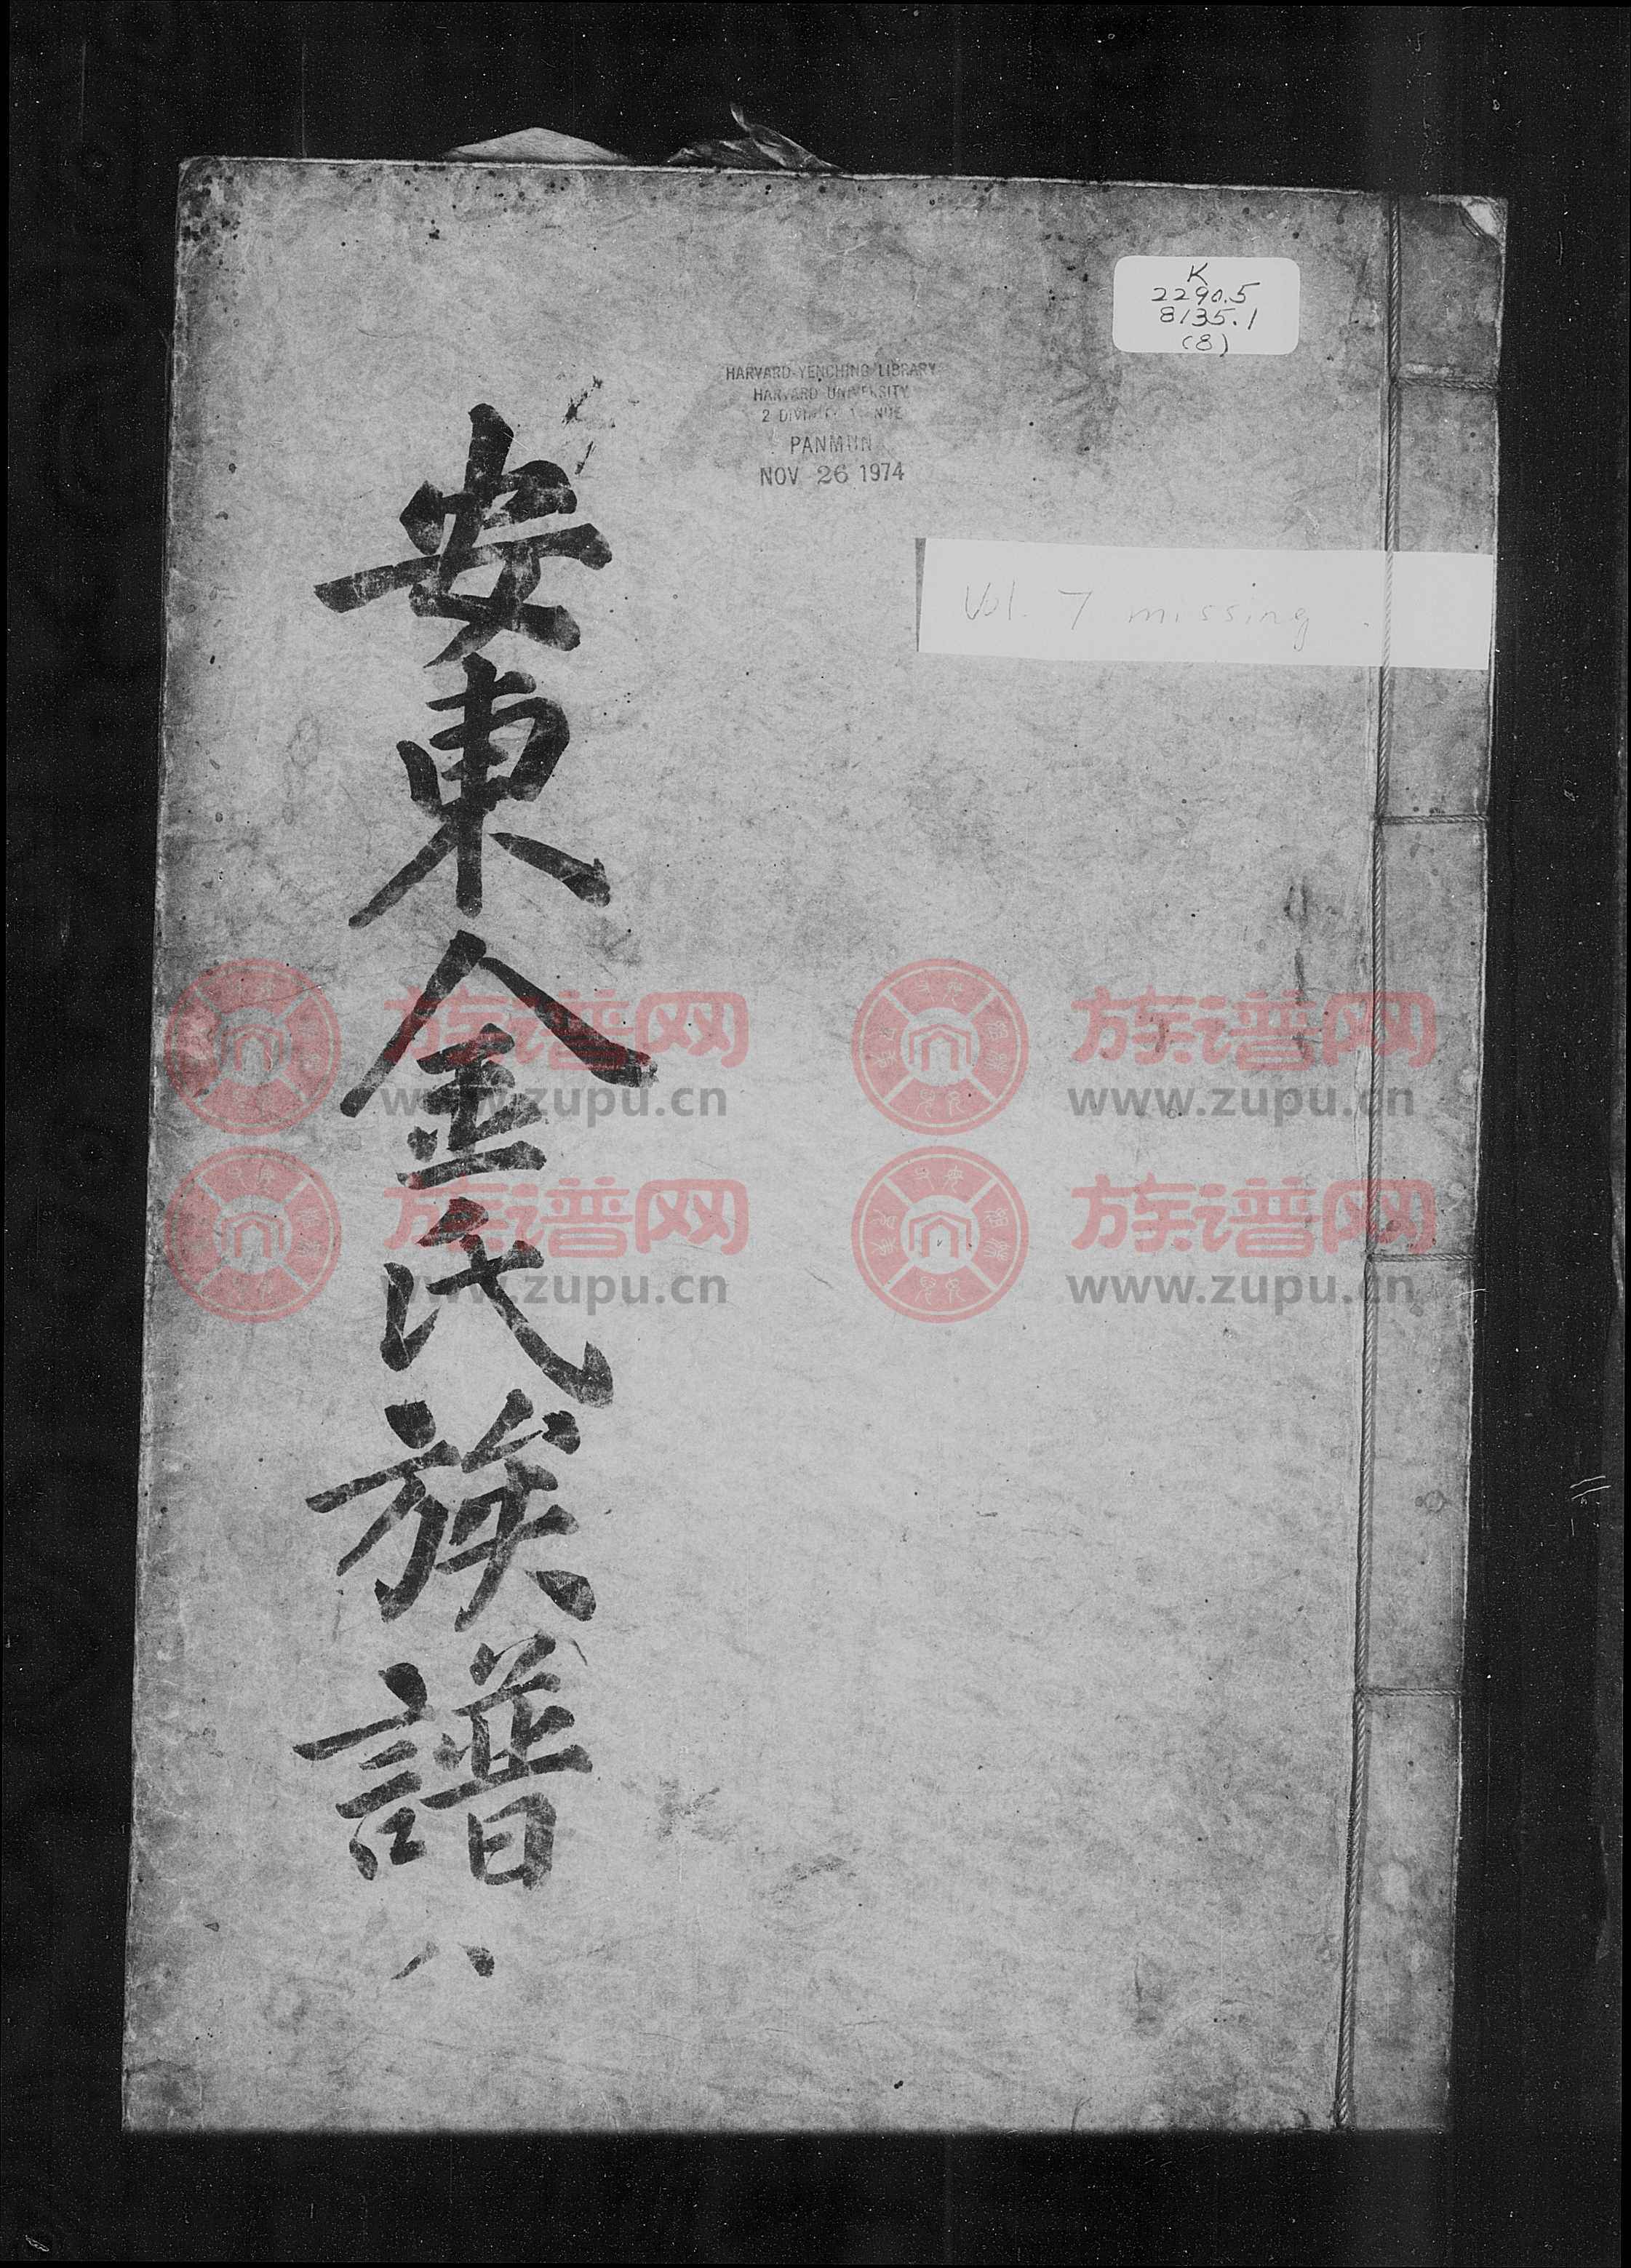 K
2290.5
8135.1
(8)
HARVARD-YENCHING LIBRARY
HARVARD UNIVERSITY
2 DIVINITY AVENUE
PANMUN
NOV 26 1974
Vol. 7 missing.
安東金氏族譜 八
族谱网 族谱网
www.zupu.cn www.zupu.cn
族谱网 族谱网
www.zupu.cn www.zupu.cn